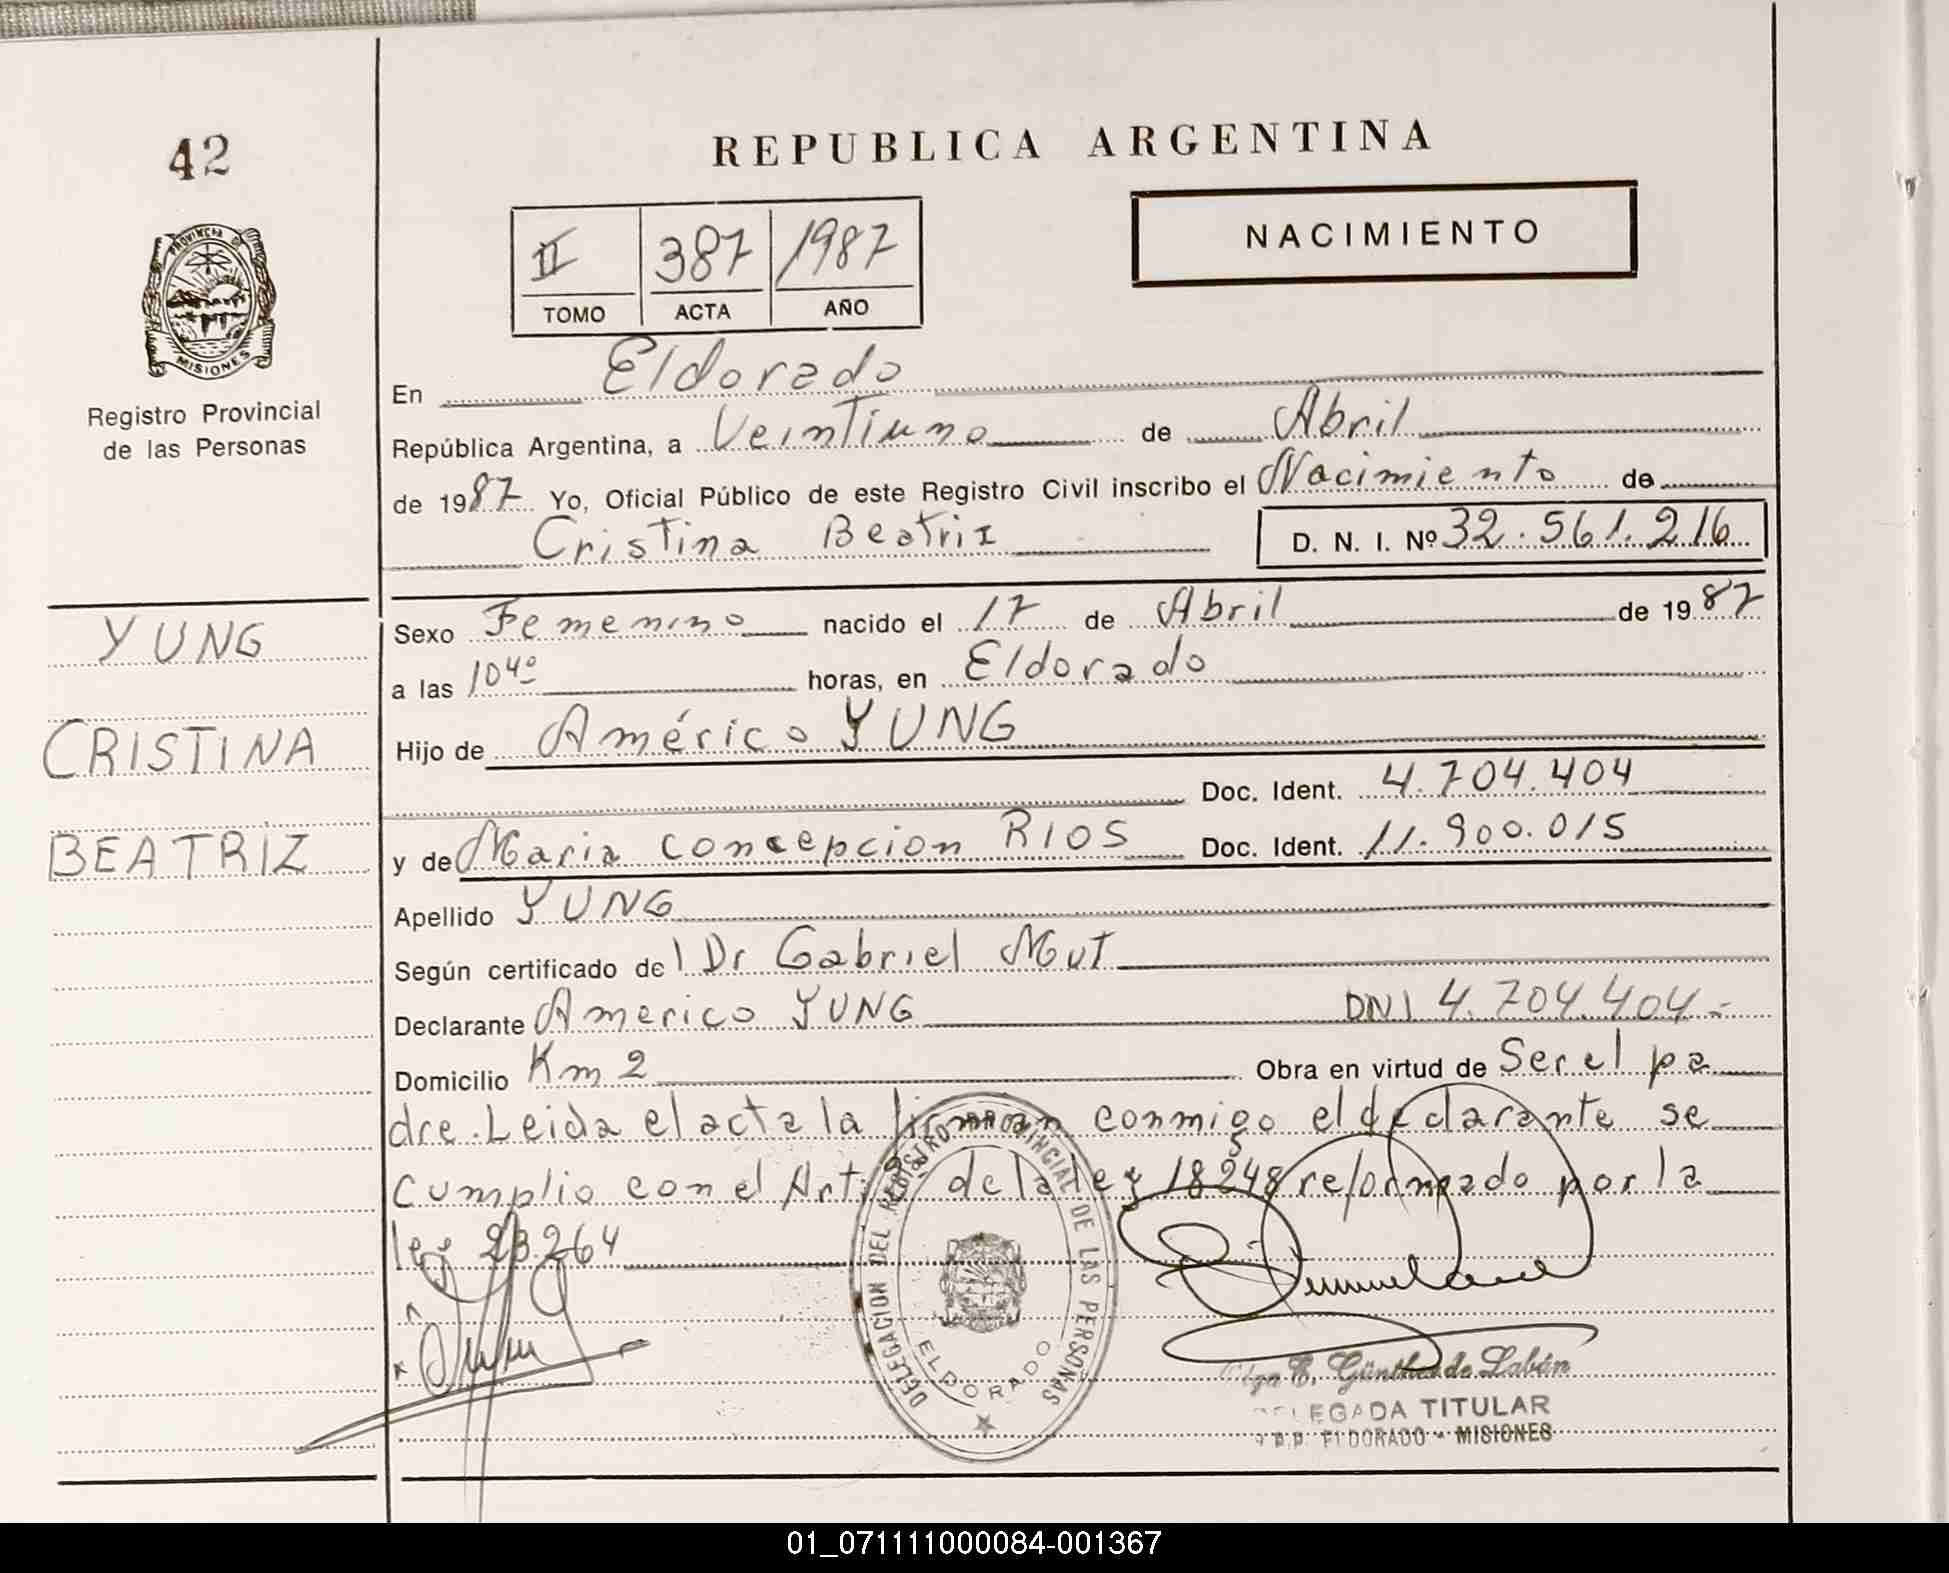 42
PROVINCIA DE
MISIONES
Registro Provincial
de las Personas
YUNG
CRISTINA
BEATRIZ
REPUBLICA ARGENTINA
II 387 1987
TOMO ACTA AÑO
NACIMIENTO
En Eldorado
República Argentina, a Veintiuno de Abril
de 1987 Yo, Oficial Público de este Registro Civil inscribo el Nacimiento de
Cristina Beatriz D. N. I. Nº 32.561.216
Sexo Femenino nacido el 17 de Abril de 1987
a las 10 40 horas, en Eldorado
Hijo de Américo YUNG
Doc. Ident. 4.704.404
y de Maria concepcion RIOS Doc. Ident. 11.900.015
Apellido YUNG
Según certificado de l Dr Gabriel Mut
Declarante Americo YUNG DNI 4.704.404.-
Domicilio Km 2 Obra en virtud de Ser el pa
dre. Leida el acta la firman conmigo el declarante se
cumplio con el Art. 5 de la ley 18248 reformado por la
ley 23.264
DELEGACION DEL REGISTRO PROVINCIAL DE LAS PERSONAS
ELDORADO
Olga E. Günther de Labán
DELEGADA TITULAR
R.P.P. ELDORADO - MISIONES
01_071111000084-001367